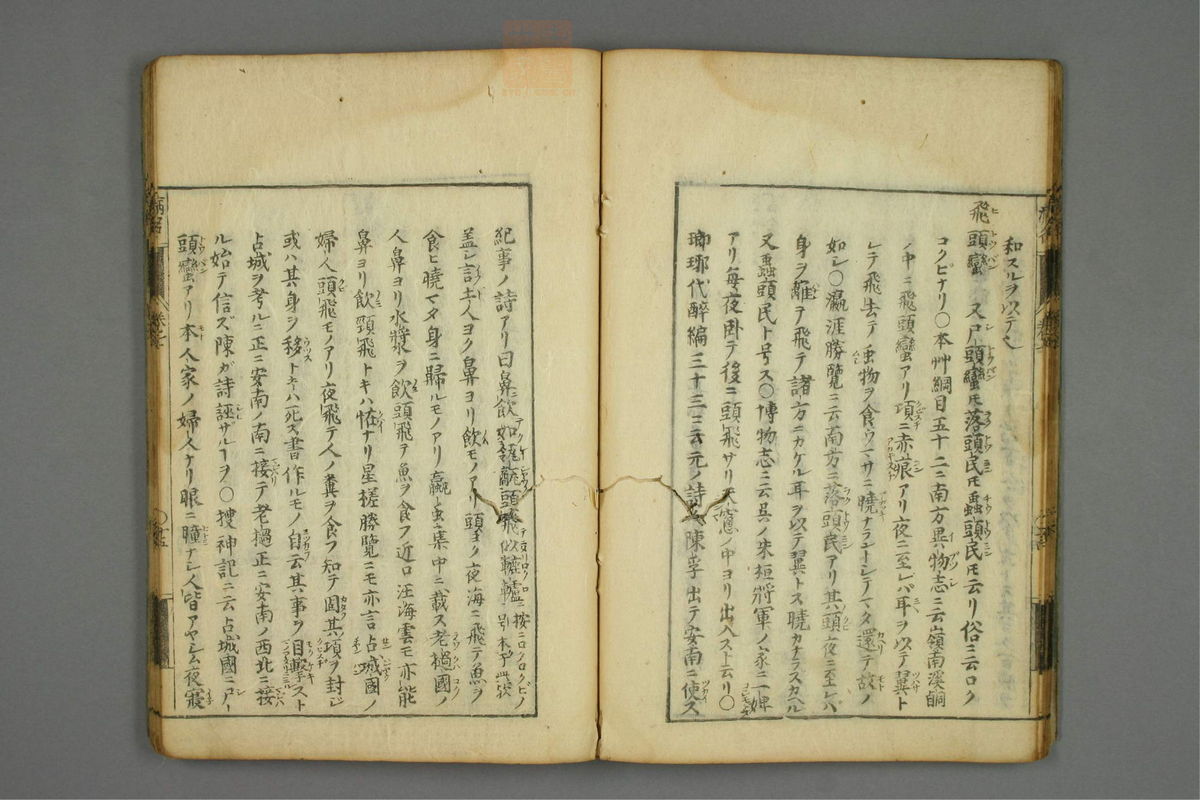 和スルヲ以テ也
飛頭蠻 又尸頭蠻モ落頭民モ蟲頭民モ云リ俗ニ云ロク
コクビナリ○本艸綱目五十二ニ南方異物志ニ云嶺南溪峒
ノ中ニ飛頭蠻アリ項ニ赤痕アリ夜ニ至レバ耳ヲ以テ翼ト
シテ飛去テ虫物ヲ食ウマサニ曉ナラントシテマタ還テ故ノ
如シ○瀛涯勝覽ニ云南方ニ落頭民アリ其頭夜ニ至レバ
身ヲ離ヲ飛テ諸方ニカケル耳ヲ以テ翼トス曉カナラズカヘル
又蟲頭民ト号ス○博物志ニ云呉ノ朱桓將軍ノ家ニ一婢
アリ每夜卧テ後ニ頭飛サリ天窓ノ中ヨリ出入スト云リ○
瑯琊代醉編三十三ニ云元ノ詩人陳孚出テ安南ニ使ス
紀事ノ詩アリ曰鼻飲如瓴甋頭飛似轆轤ニ按ニロクロクビノ
盖シ言土人ヨク鼻ヨリ飲モノアリ頭ヨク夜海ニ飛テ魚ヲ
食ヒ曉マタ身ニ歸ルモノアリ嬴虫集中ニ載ス老撾國ノ
人鼻ヨリ水漿ヲ飲頭飛テ魚ヲ食フ近口汪海雲モ亦能
鼻ヨリ飲頸飛トキハ怪ナリ星槎勝覽ニモ亦言占城國ノ
婦人頭飛モノアリ夜飛テ人ノ糞ヲ食フ知テ固其項ヲ封シ
或ハ其身ヲ移トキハ死ス書作ルモノ自云其事ヲ目擊スト
占城ヲ考ルニ正ニ安南ノ南ニ接テ老撾正ニ安南ノ西北ニ接
ル始テ信ズ陳ガ詩誣ザルヿヲ○搜神記ニ云占城國ニ尸
頭蠻アリ本人家ノ婦人ナリ眼ニ瞳ナシ人皆アヤシム夜寢